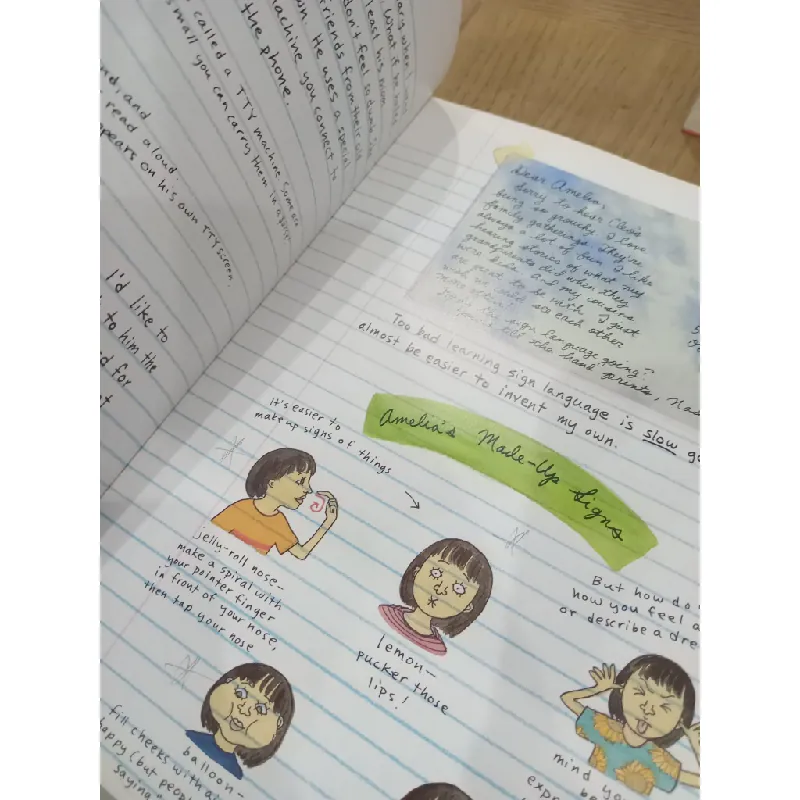 ary when I
. What if he talks
least his mom
don't feel so dumb
friends from their old
wn. He uses a special
machine you connect to
the phone.
called a TTY machine. Some are
small you can carry them in a
nd, and
read aloud
pears on his own TTY screen.
I'd like to
to him the
d for
t
Dear Amelia,
Sorry to hear Cleo's
being so grouchy. I love
family gatherings. They're
always a lot of fun. I like
hearing stories of what my
grandparents did when they
were kids. And my cousins
are great to be with. I just
wish we could see each other
more often.
How's the sign language going?
the hand prints, Nad
Too bad learning sign language is slow go
almost be easier to invent my own.
Amelia's Made-Up Signs
It's easier to
make up signs of things
jelly-roll nose—
make a spiral with
your pointer finger
in front of your nose,
then tap your nose
lemon—
pucker those
lips!
But how do
how you feel a
or describe a dre
balloon—
fill cheeks with ai
happy (but peopl
saying
mind yo
be
expr